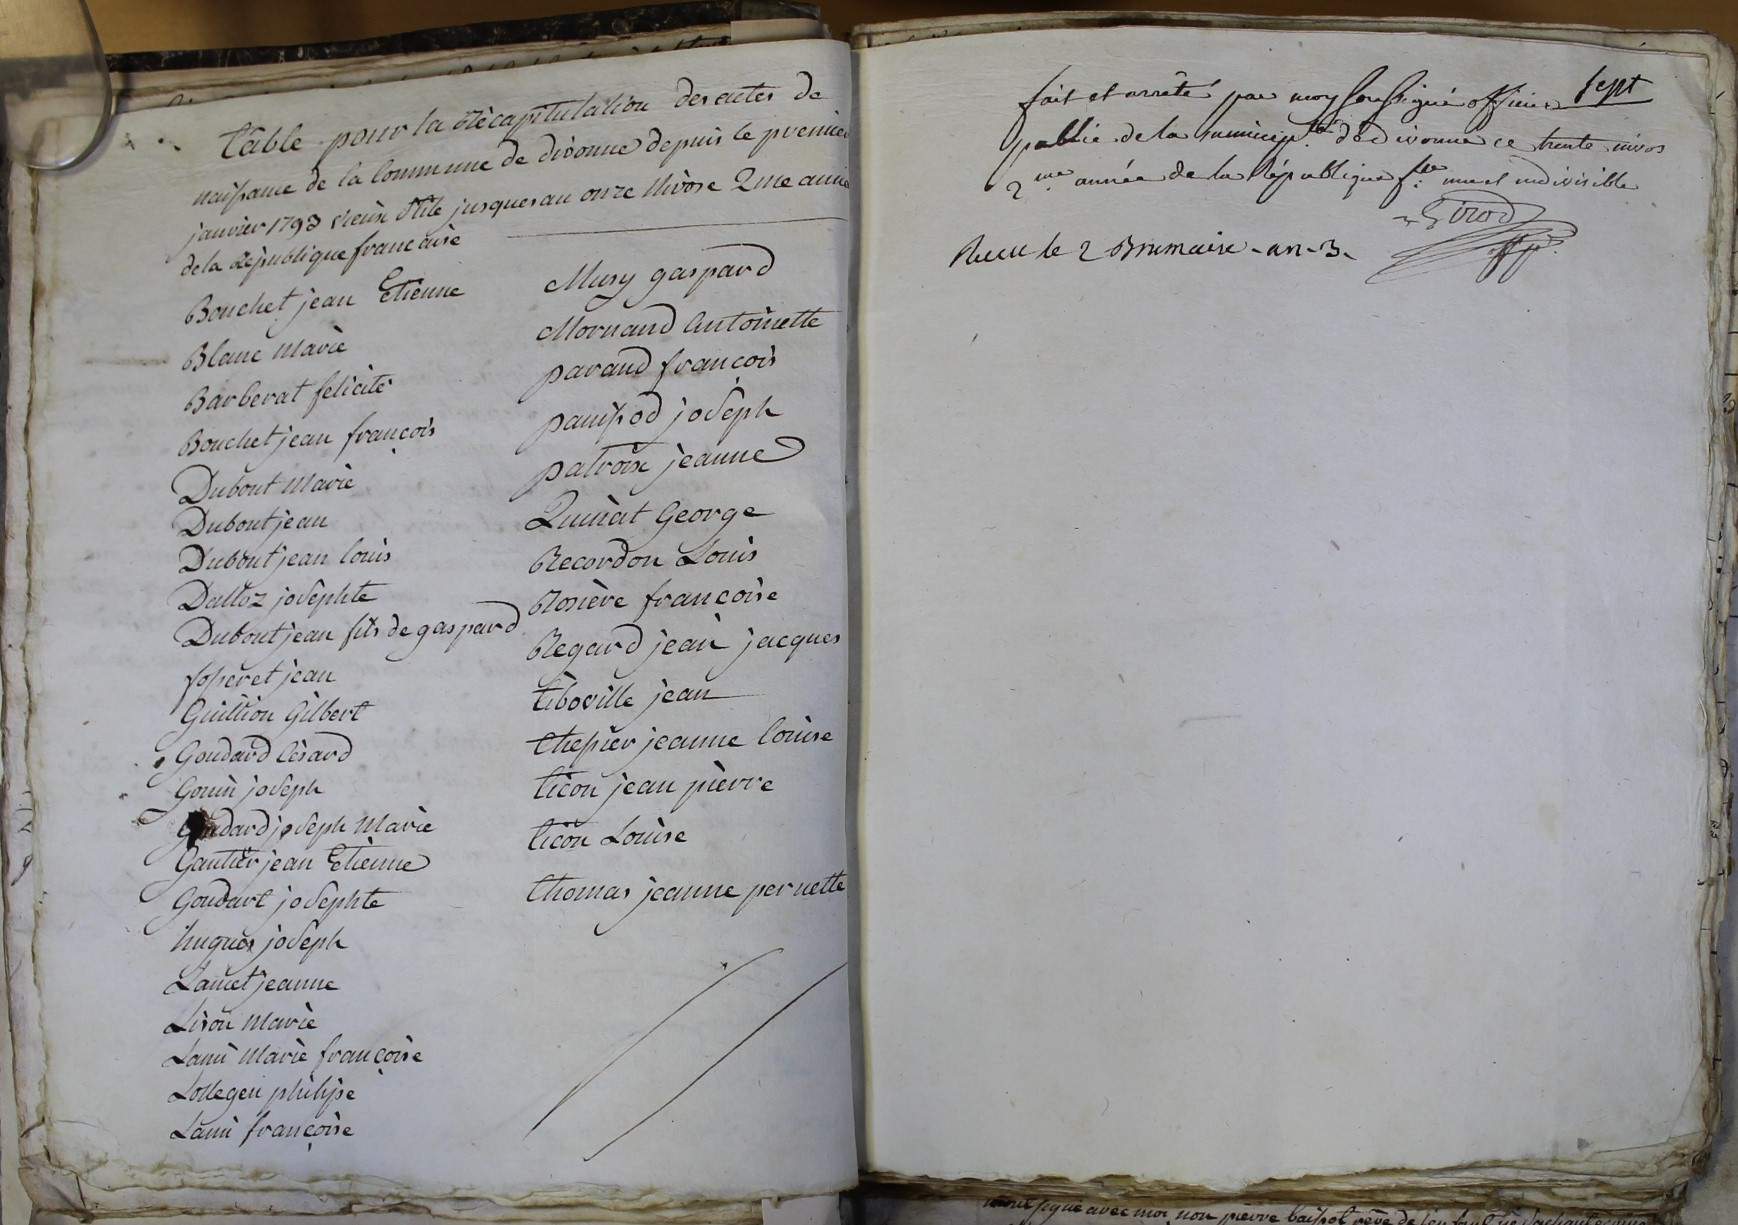 table pour la récapitulation des actes de
naissance de la Commune de divonne depuis le premier
janvier 1793 vieux stile jusques au onze Nivose 2me année
de la République francaise
Bouchet jean Etienne
Blanc Marie
Barberat felicité
Bouchet jean françois
Dubout Marie
Dubout jean
Dubout jean Louis
Dalloz josephte
Dubout jean fils de gaspard
fosseret jean
Guillion Gilbert
Goudard Césard
Gonin joseph
Goudard joseph Marie
Gautier jean Etienne
Goudart josephte
hugues joseph
Lancet jeanne
Lison Marie
Lami Marie françoise
Lollegen philipe
Lami françoise
Musy gaspard
Mornand Antoinette
parand françois
panissod joseph
patroix jeanne
Quinat George
Recordon Louis
Rosière francoise
Regard jean jacques
tiboville jean
thessier jeanne Louise
ticon jean pierre
ticon Louise
thomas jeanne pernette
sept
fait et arrêté par moy soussigné officier
public de la municip.té de divonne ce trente nivos
2.me année de la République f.se une et indivisible
Girod
off p.
Recu le 2 Brumaire - an - 3 -
signé avec moi non pierre père de l'enfant